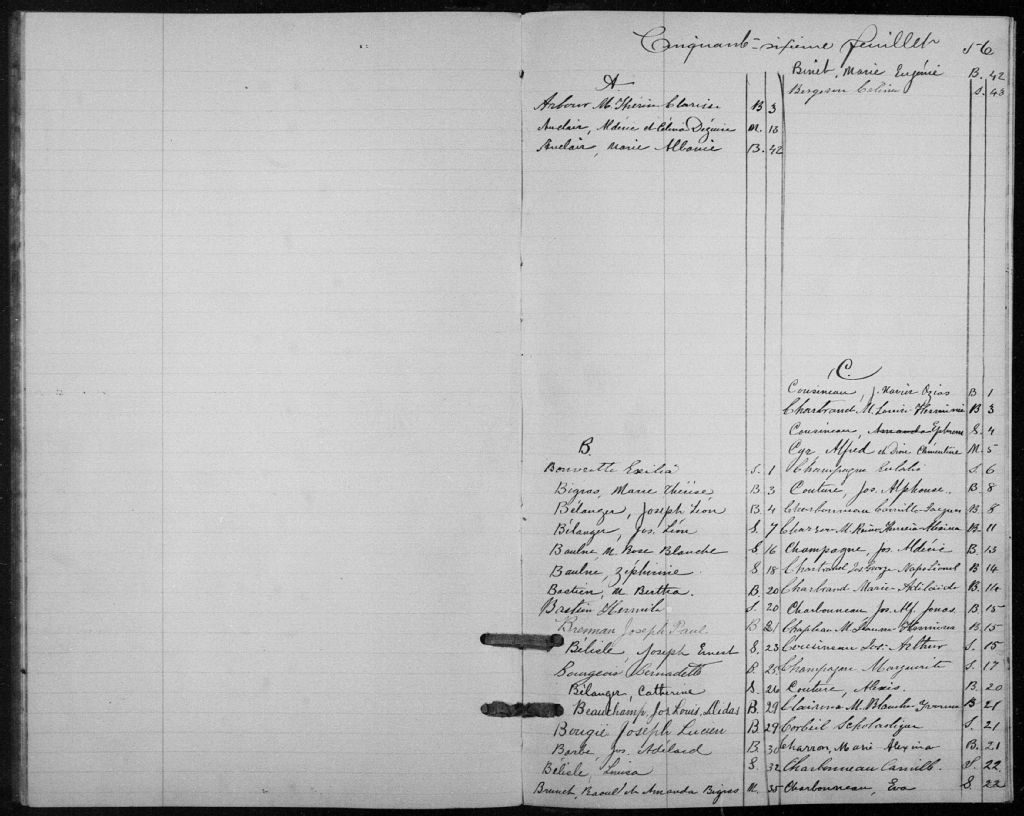 Cinquante-sixième feuillet 56
A.
Arbour M. Thérèse Clarisse B 3
Auclair, Aldéric et Céléna Déguire M. 13
Auclair, Marie Albanie B. 42
B.
Bouvrette Exilia S. 1
Bigras, Marie Thérèse B. 3
Bélanger, Joseph Léon B. 4
Bélanger, Jos. Léon S. 7
Baulne, M. Rose Blanche S 16
Baulne, Zéphirine S. 18
Bastien, M. Bertha. B. 20
Bastien Hermile S. 20
Brennan Joseph Paul B 21
Bélisle Joseph Ernest S. 23
Bourgeois Bernadette B. 25
Bélanger, Catherine S. 26
Beauchamp, Jos Louis, Midas B. 29
Bougie Joseph Lucien B. 29
Barbe, Jos. Adélard B. 30
Bélisle, Louisa S. 32
Brunet, Raoul et Amanda Bigras M. 35
Binet, Marie Eugénie B. 42
Bergeron Célina S. 43
C.
Cousineau, J. Xavier Ozias B 1
Chartrand M. Louise Herminie B 3
Cousineau, Amanda Ephrem S. 4
Cyr Alfred et Dion Clémentine M. 5
Champagne Eulalie S. 6
Couture, Jos. Alphonse. B. 8
Charbonneau Camille Jacques B 8
M. B. 11
Champagne, Jos. Aldéric B. 13
Chartrand Jos George Napoléonel B 14
Chartrand Marie-Adélaïde B. 14
Charbonneau Jos. Alf. Jonas. B. 15
Chapleau M. Jeanne B. 15
Cousineau Jos. Arthur S. 15
Champagne Marguerite S. 17
Couture, Alexis. B. 20
M. Blanche Yvonne B 21
Corbeil Scholastique S. 21
Charron, Marie Alexina B. 21
Charbonneau Camille. S. 22
Charbonneau, Eva S. 22